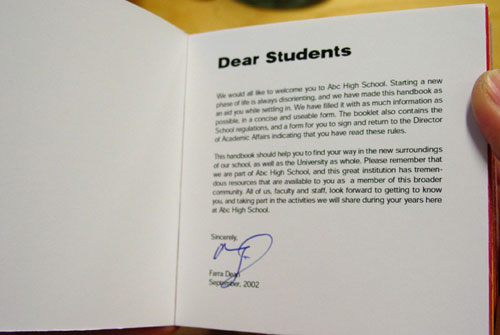 Dear Students
We would all like to welcome you to Abc High School. Starting a new
phase of life is always disorienting, and we have made this handbook as
an aid you while settling in. We have filled it with as much information as
possible, in a concise and useable form. The booklet also contains the
School regulations, and a form for you to sign and return to the Director
of Academic Affairs indicating that you have read these rules.
This handbook should help you to find your way in the new surroundings
of our school, as well as the University as whole. Please remember that
we are part of Abc High School, and this great institution has tremen-
dous resources that are available to you as a member of this broader
community. All of us, faculty and staff, look forward to getting to know
you, and taking part in the activities we will share during your years here
at Abc High School.
Sincerely,
Farra Dean
September, 2002